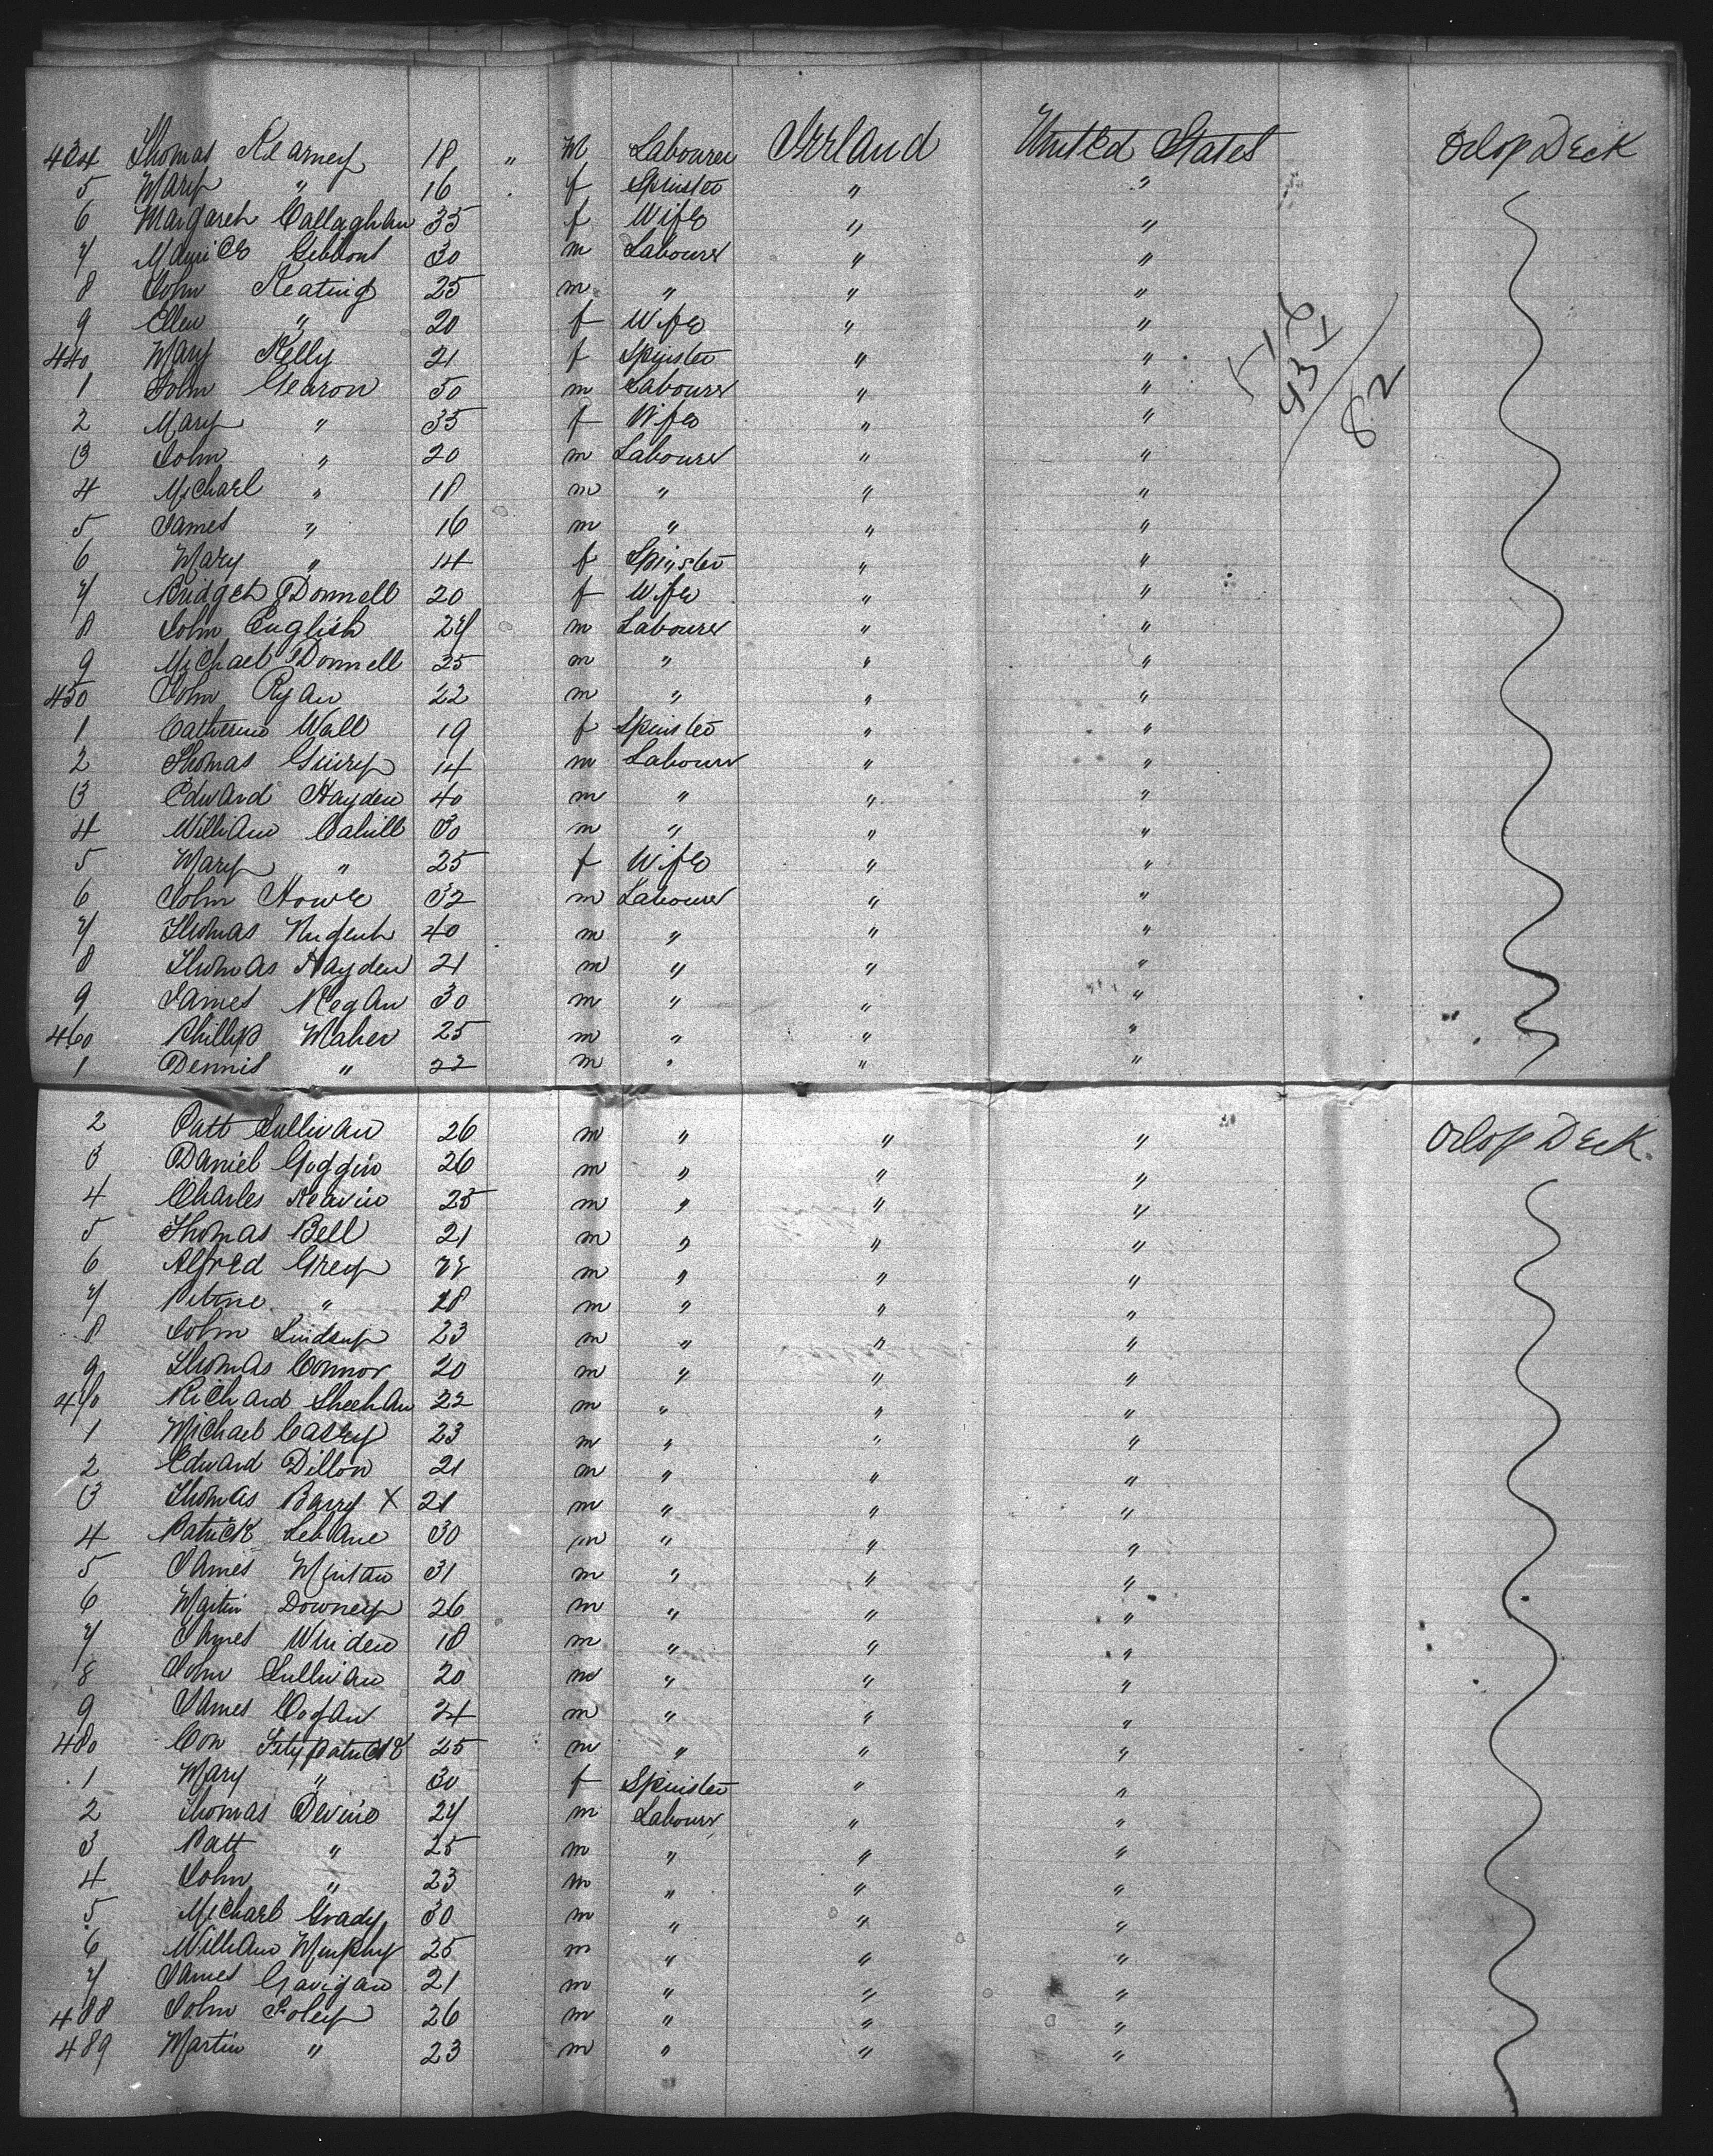 434 Thomas Kearney 18 " M Labourer Ireland United States Orlop Deck
5 Mary " 16 f Spinster " "
6 Margaret Callaghan 35 f Wife " "
7 Maurice Gibbons 30 m Labourer " "
8 John Keating 25 m " " "
9 Ellen " 20 f Wife " "
440 Mary Kelly 21 f Spinster " "
1 John Gearon 50 m Labourer " "
2 Mary " 35 f Wife " "
3 John " 20 m Labourer " "
4 Michael " 18 m " " "
5 James " 16 m " " "
6 Mary " 14 f Spinster " "
7 Bridget O'Donnell 20 f Wife " "
8 John English 27 m Labourer " "
9 Michael O'Donnell 25 m " " "
450 John Ryan 22 m " " "
1 Catherine Wall 19 f Spinster " "
2 Thomas Guiry 14 m Labourer " "
3 Edward Hayden 40 m " " "
4 William Cahill 30 m " " "
5 Mary " 25 f Wife " "
6 John Howe 32 m Labourer " "
7 Thomas Nugent 40 m " " "
8 Thomas Hayden 21 m " " "
9 James Regan 30 m " " "
460 Phillip Maher 25 m " " "
1 Dennis " 22 m " " "
2 Patt Sullivan 26 m " " " Orlop Deck.
3 Daniel Goggin 26 m " " "
4 Charles Keavin 25 m " " "
5 Thomas Bell 21 m " " "
6 Alfred Grey m " " "
7 " 18 m " " "
8 John Lindsey 23 m " " "
9 Thomas Connor 20 m " " "
470 Richard Sheehan 22 m " " "
1 Michael Casey 23 m " " "
2 Edward Dillon 21 m " " "
3 Thomas Barry X 21 m " " "
4 Patrick Lehane 30 m " " "
5 James 31 m " " "
6 Martin Downey 26 m " " "
7 James Whiden 18 m " " "
8 John Sullivan 20 m " " "
9 James Cogan 24 m " " "
480 Con Fitzpatrick 25 m " " "
1 Mary " 30 f Spinster " "
2 Thomas Devine 27 m Labourer " "
3 Patt " 25 m " " "
4 John " 23 m " " "
5 Michael Grady 30 m " " "
6 William Murphy 25 m " " "
7 James Gavigan 21 m " " "
488 John Foley 26 m " " "
489 Martin " 23 m " " "
82